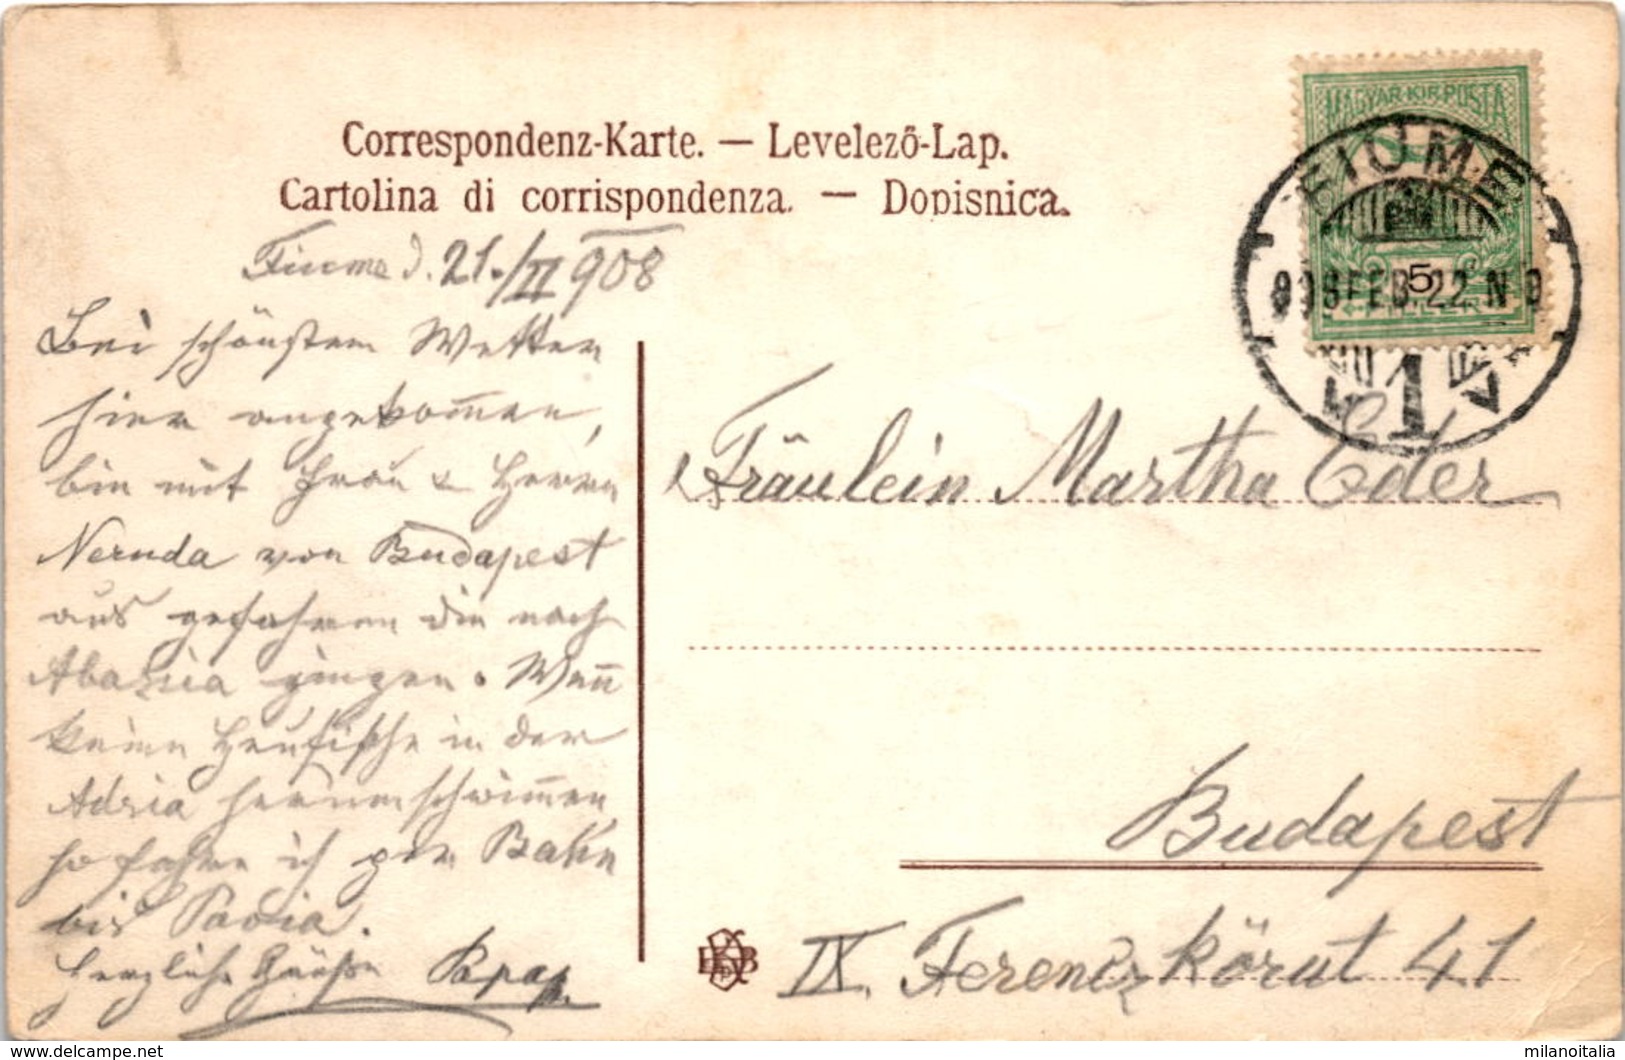 Correspondenz-Karte. — Levelező-Lap.
Cartolina di corrispondenza. — Dopisnica.
MAGYAR KIR. POSTA
FIUME
908 FEB. 22 N
5
FILLER
1
Fiume d. 21./II 908
Bei schönstem Wetter
hier angekom̄en,
bin mit Frau & Herrn
Neruda von Budapest
aus gefahren die nach
Abazia gingen. Wen̄
keine Haifische in der
Adria herumschwim̄en,
so fahre ich per Bahn
bis Pavia.
Herzliche Grüße Papa
Fräulein Martha Eder
Budapest
IX. Ferencz körut 41
delcampe.net
milanoitalia